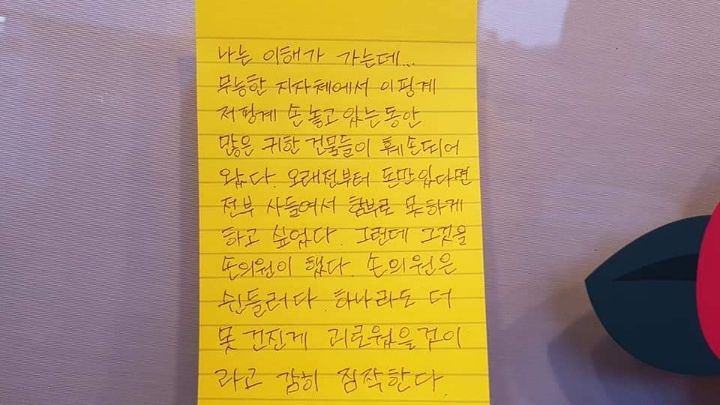 나는 이해가 가는데...
무능한 지자체에서 이핑계
저핑계 손 놓고 있는 동안
많은 귀한 건물들이 훼손되어
왔다. 오래전부터 돈만 있다면
전부 사들여서 함부로 못하게
하고 싶었다. 그런데 그것을
손의원이 했다. 손의원은
쉰들러다 하나라도 더
못 건진게 괴로웠을 것이
라고 감히 짐작한다.